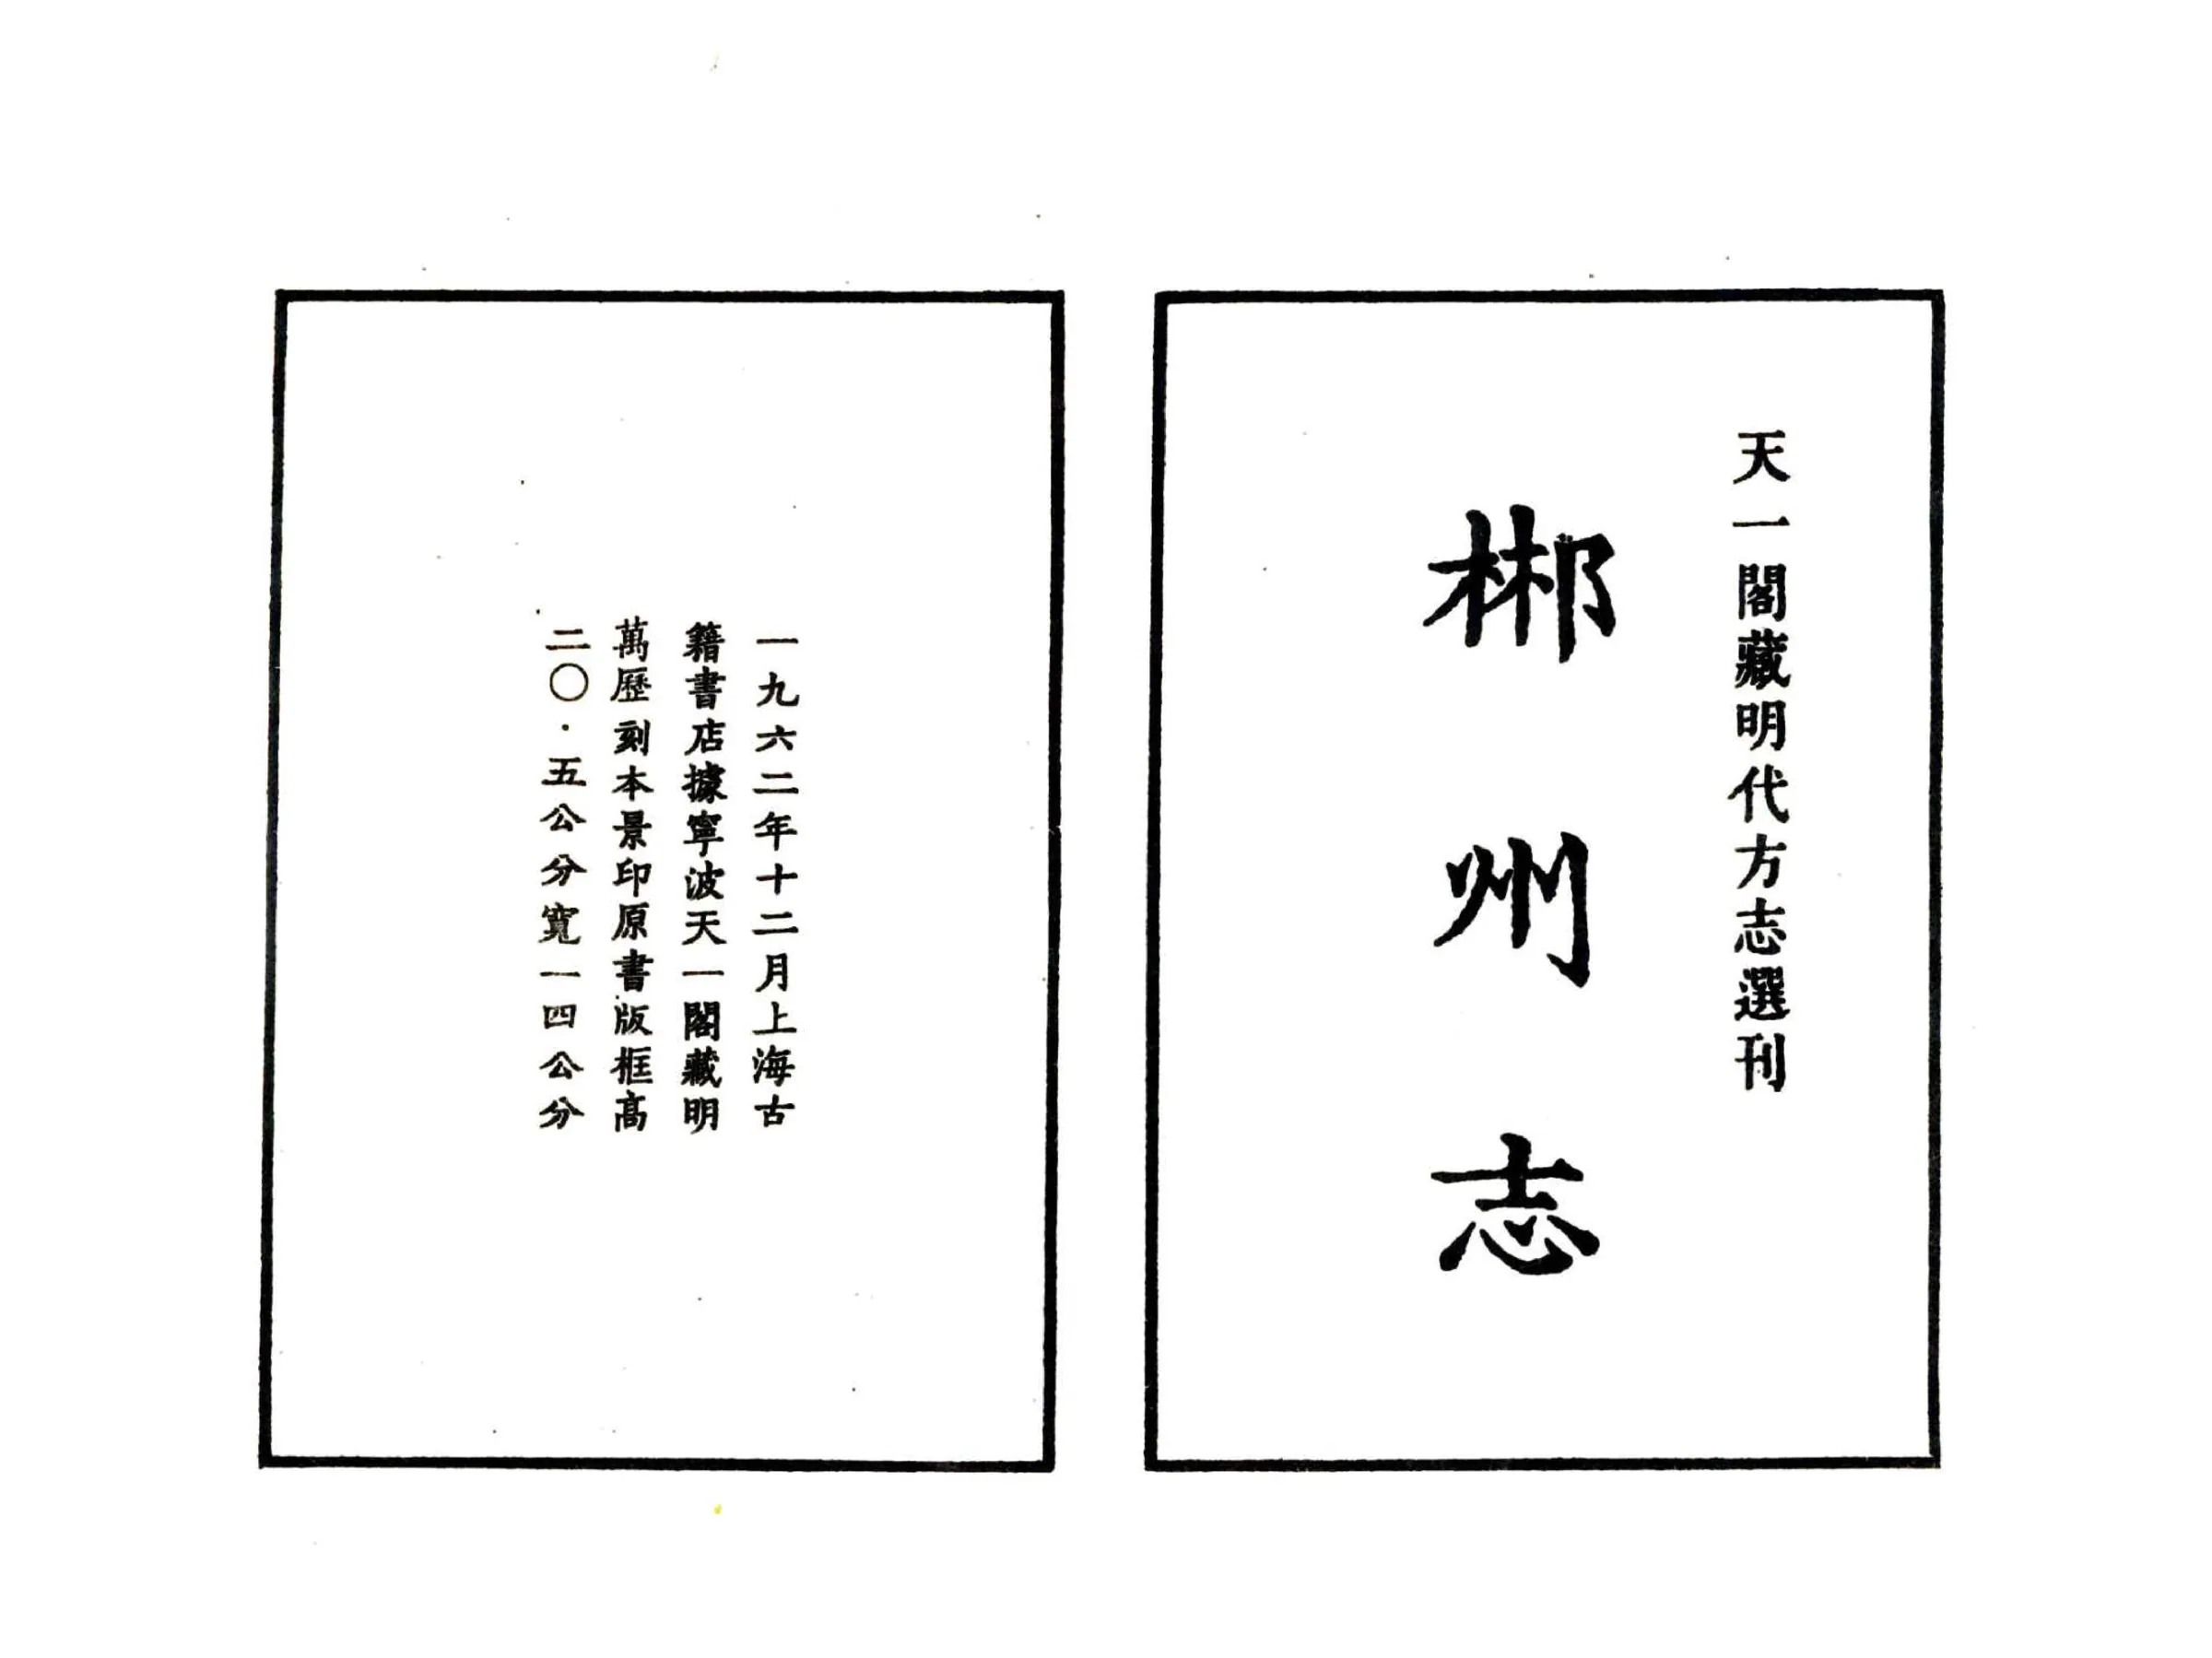 天一閣藏明代方志選刊
郴州志
一九六二年十二月上海古
籍書店據寧波天一閣藏明
萬歷刻本景印原書版框高
二〇·五公分寬一四公分